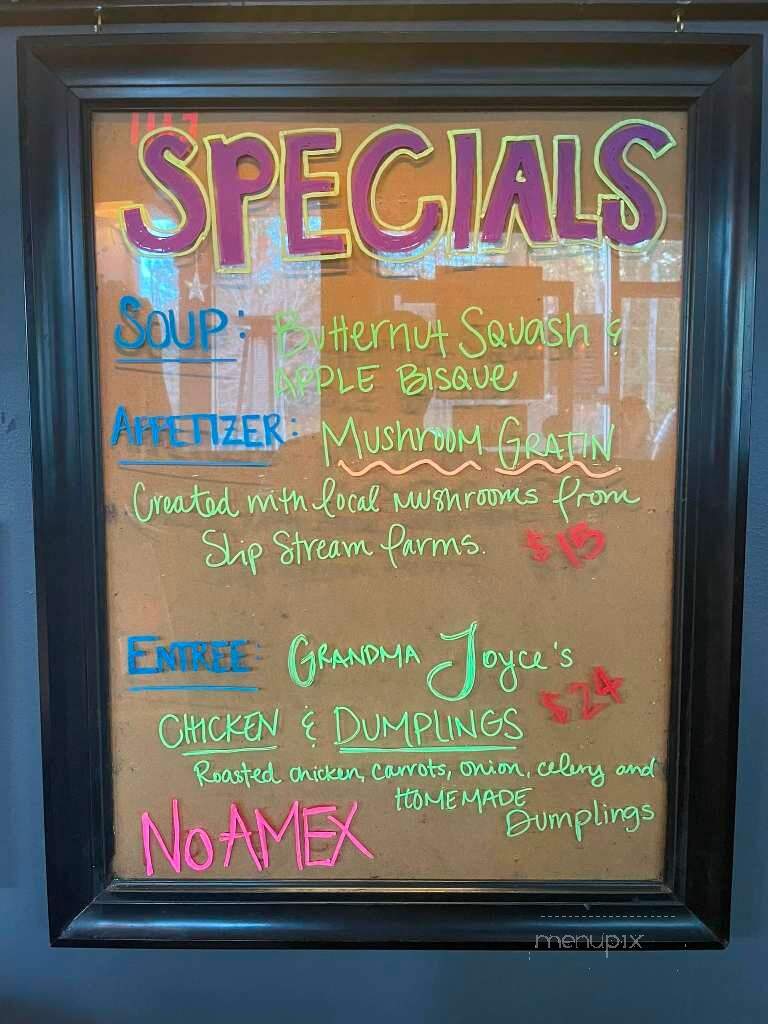 SPECIALS
SOUP: Butternut Squash &
APPLE BISQUE
APPETIZER: MUSHROOM GRATIN
Created with local mushrooms from
Slip Stream farms. $15
ENTREE: GRANDMA Joyce's
CHICKEN & DUMPLINGS $24
Roasted chicken, carrots, onion, celery and
HOMEMADE
Dumplings
NO AMEX
menupix